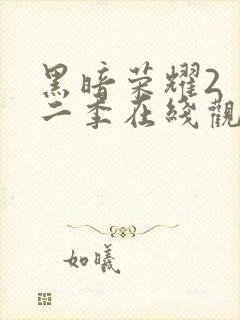 黑暗荣耀2
二季在线觀
如曦